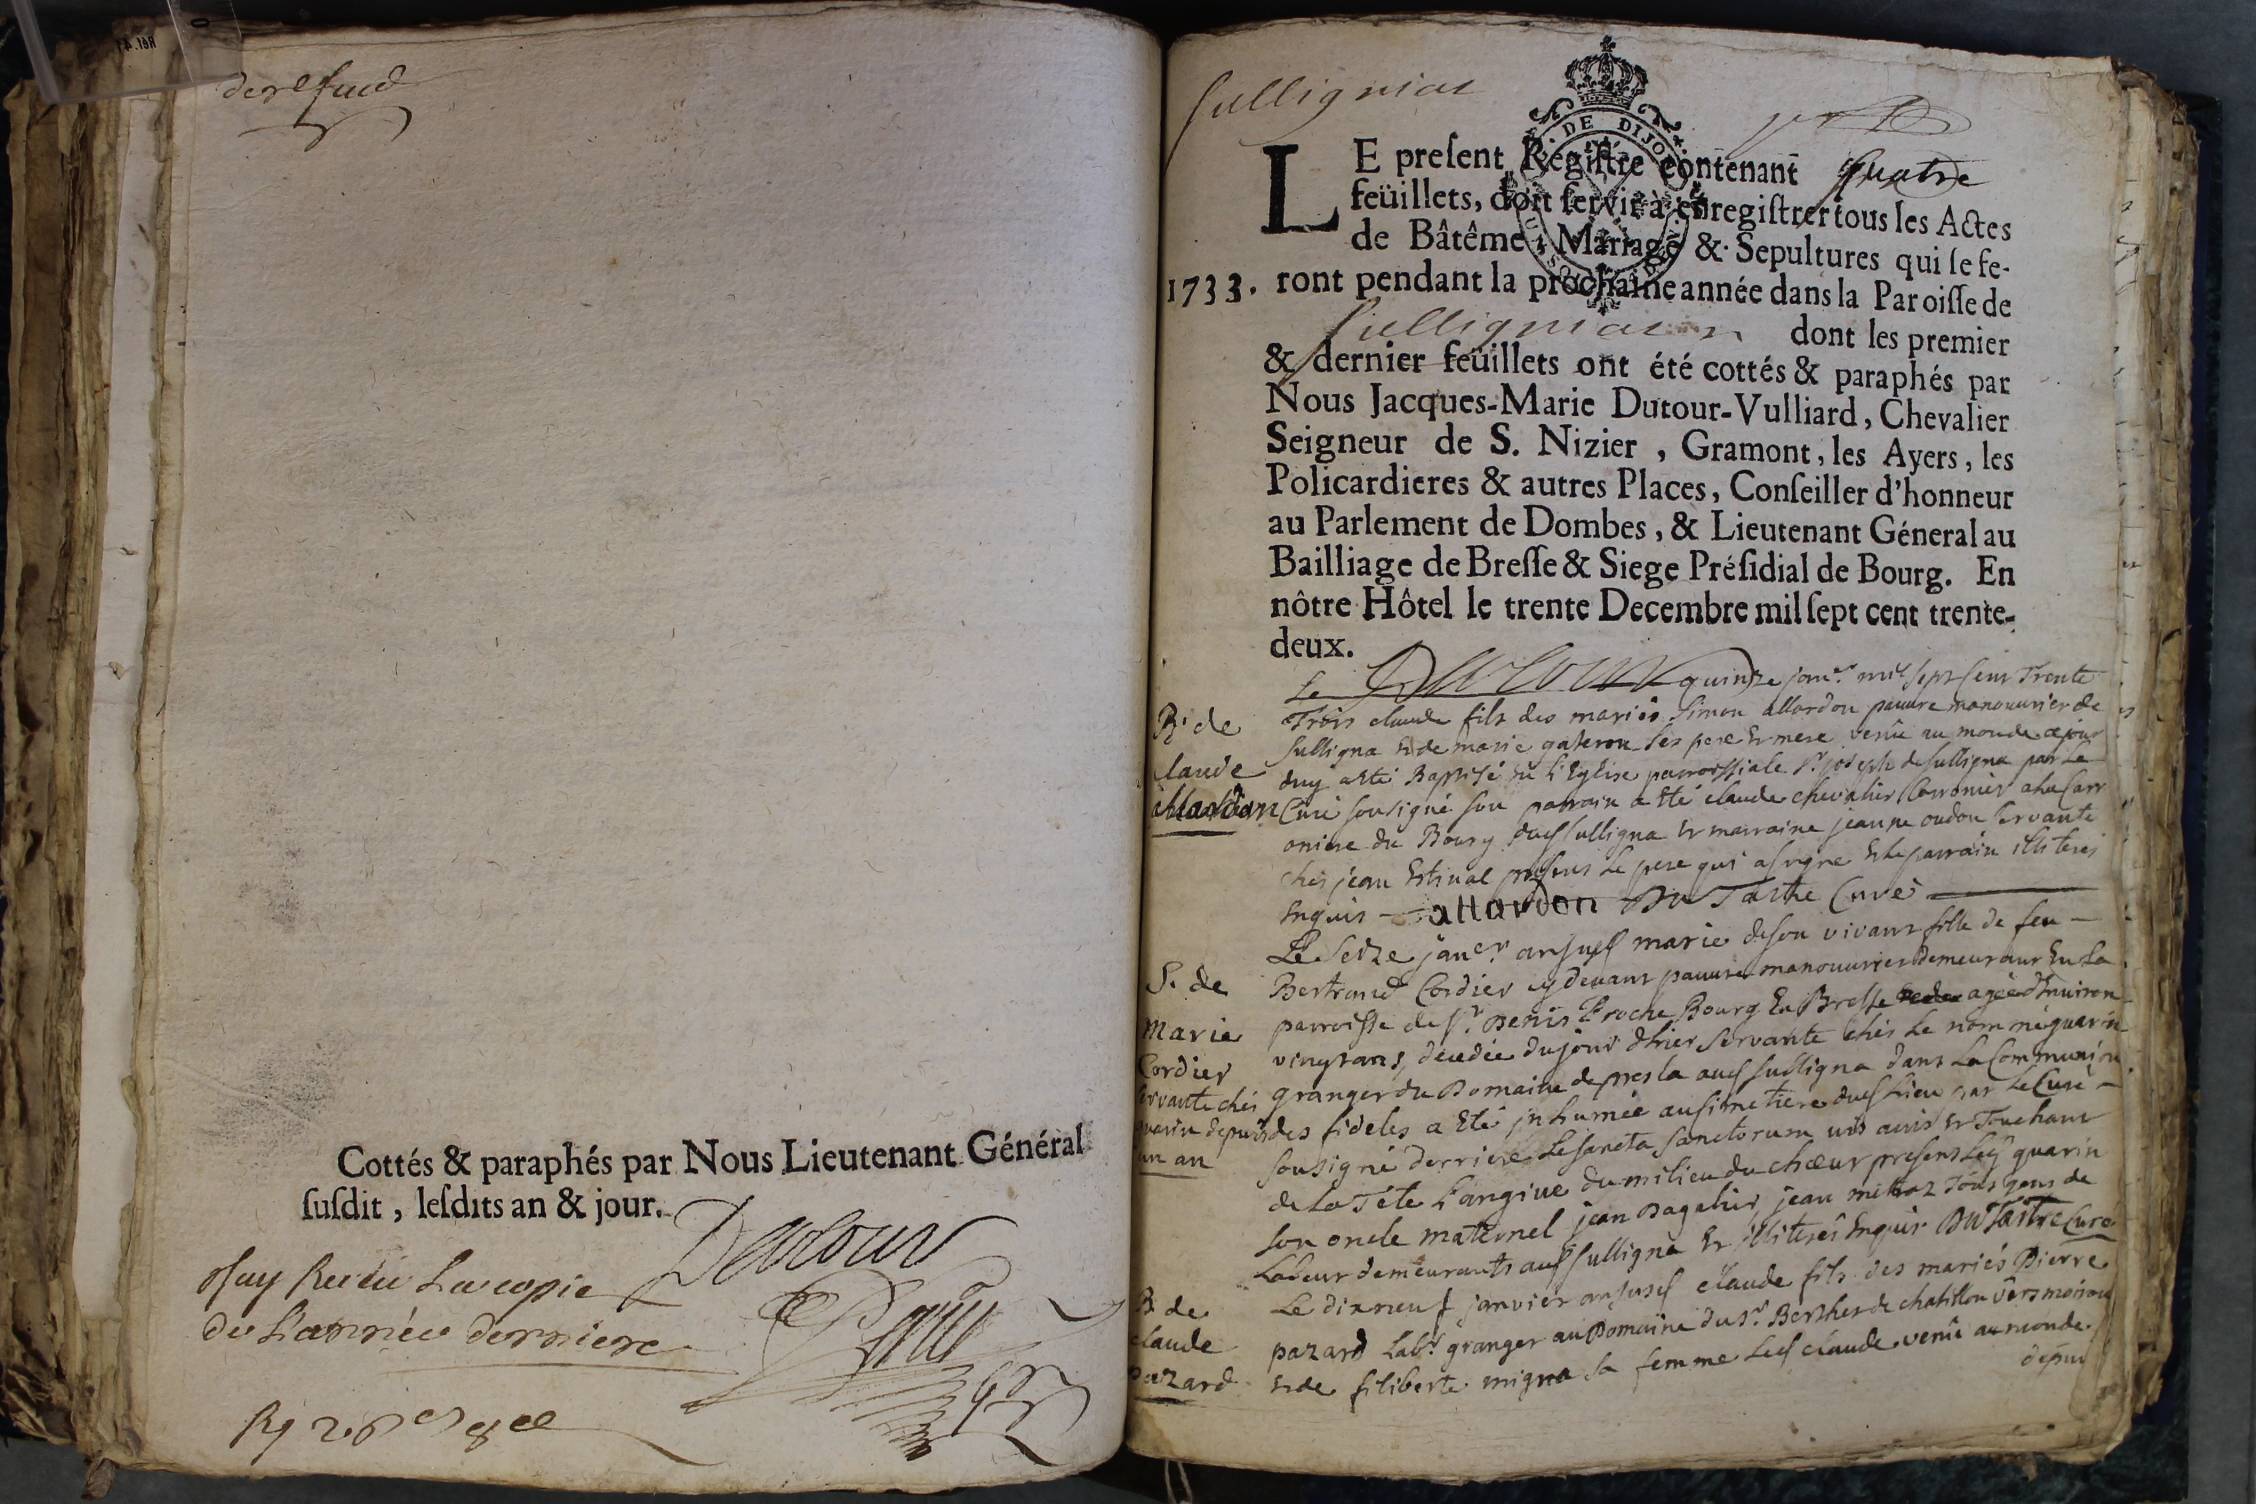 Cottés & paraphés par Nous Lieutenant Général
suſdit, leſdits an & jour.
Dutour
J'ay Receu La copie
de L'année derniere
Sulligniat
DE DIJON
LE preſent Regiſtre contenant quatre
feüillets, doit ſervir à enregiſtrer tous les Actes
de Bâtême, Mariage & Sepultures qui ſe fe-
1733. ront pendant la prochaine année dans la Paroiſſe de
Sulligniat dont les premier
& dernier feüillets ont été cottés & paraphés par
Nous Jacques-Marie Dutour-Vulliard, Chevalier
Seigneur de S. Nizier, Gramont, les Ayers, les
Policardieres & autres Places, Conſeiller d'honneur
au Parlement de Dombes, & Lieutenant Géneral au
Bailliage de Breſſe & Siege Préſidial de Bourg. En
nôtre Hôtel le trente Decembre mil ſept cent trente-
deux.
Dutour
Le quinze janr. mil sept cent Trente
Trois claude fils des mariés Simon allardon pauvre manouvrier de
Sulligna et de marie gateron ses pere et mere venu au monde ce jour
duy a eté Baptisé en l'Eglise parroissiale St. joseph de Sulligna par Le
Curé sousigné son parrain a eté claude chevalier
du Bourg dud Sulligna et marraine jeanne oudon servante
chés jean Estinal presens Le pere qui a signé et le parrain illiteres
Enquis allardon Du Tartre Curé
B. de
Claude
allardon
Le Seize janer. an susd marie de son vivant fille de feu
Bertrand Cordier cy devant pauvre manouvrier demeurant En La
parroisse de St. Denis Proche Bourg En Bresse agée d'Environ
vingt ans, decedée du jour d'hier Servante chés Le nommé guarin
granger du Domaine de presla aud Sulligna dans La Communion
des fideles a eté jnhumée au simetiere dud Lieu par Le Curé
sousigné derriere Le sancta Sanctorum et Touchant
de La Téte L'angive du milieu du chœur presens Led guarin
son oncle maternel jean Dagalier, jean Tous gens de
Labeur demeurants aud Sulligna et illiterés Enquis Du Tartre Curé
S. de
Marie
Cordier
servante chés
guarin depuis
un an
Le dix neuf janvier an susd claude fils des mariés Pierre
pazard Labr. granger au Domaine du Sr. de chatillon
et de filiberte migna sa femme Led claude venu au monde
depuis
B. de
claude
pazard